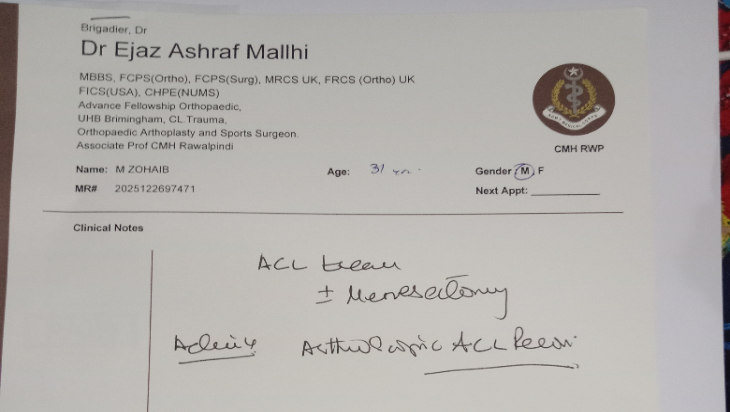 Brigadier, Dr
Dr Ejaz Ashraf Mallhi
MBBS, FCPS(Ortho), FCPS(Surg), MRCS UK, FRCS (Ortho) UK
FICS(USA), CHPE(NUMS)
Advance Fellowship Orthopaedic,
UHB Brimingham, CL.Trauma,
Orthopaedic Arthoplasty and Sports Surgeon.
Associate Prof CMH Rawalpindi
CMH RWP
Name: M ZOHAIB Age: 31 Gender M, F
MR# 2025122697471 Next Appt:
Clinical Notes
ACL
±
ACL